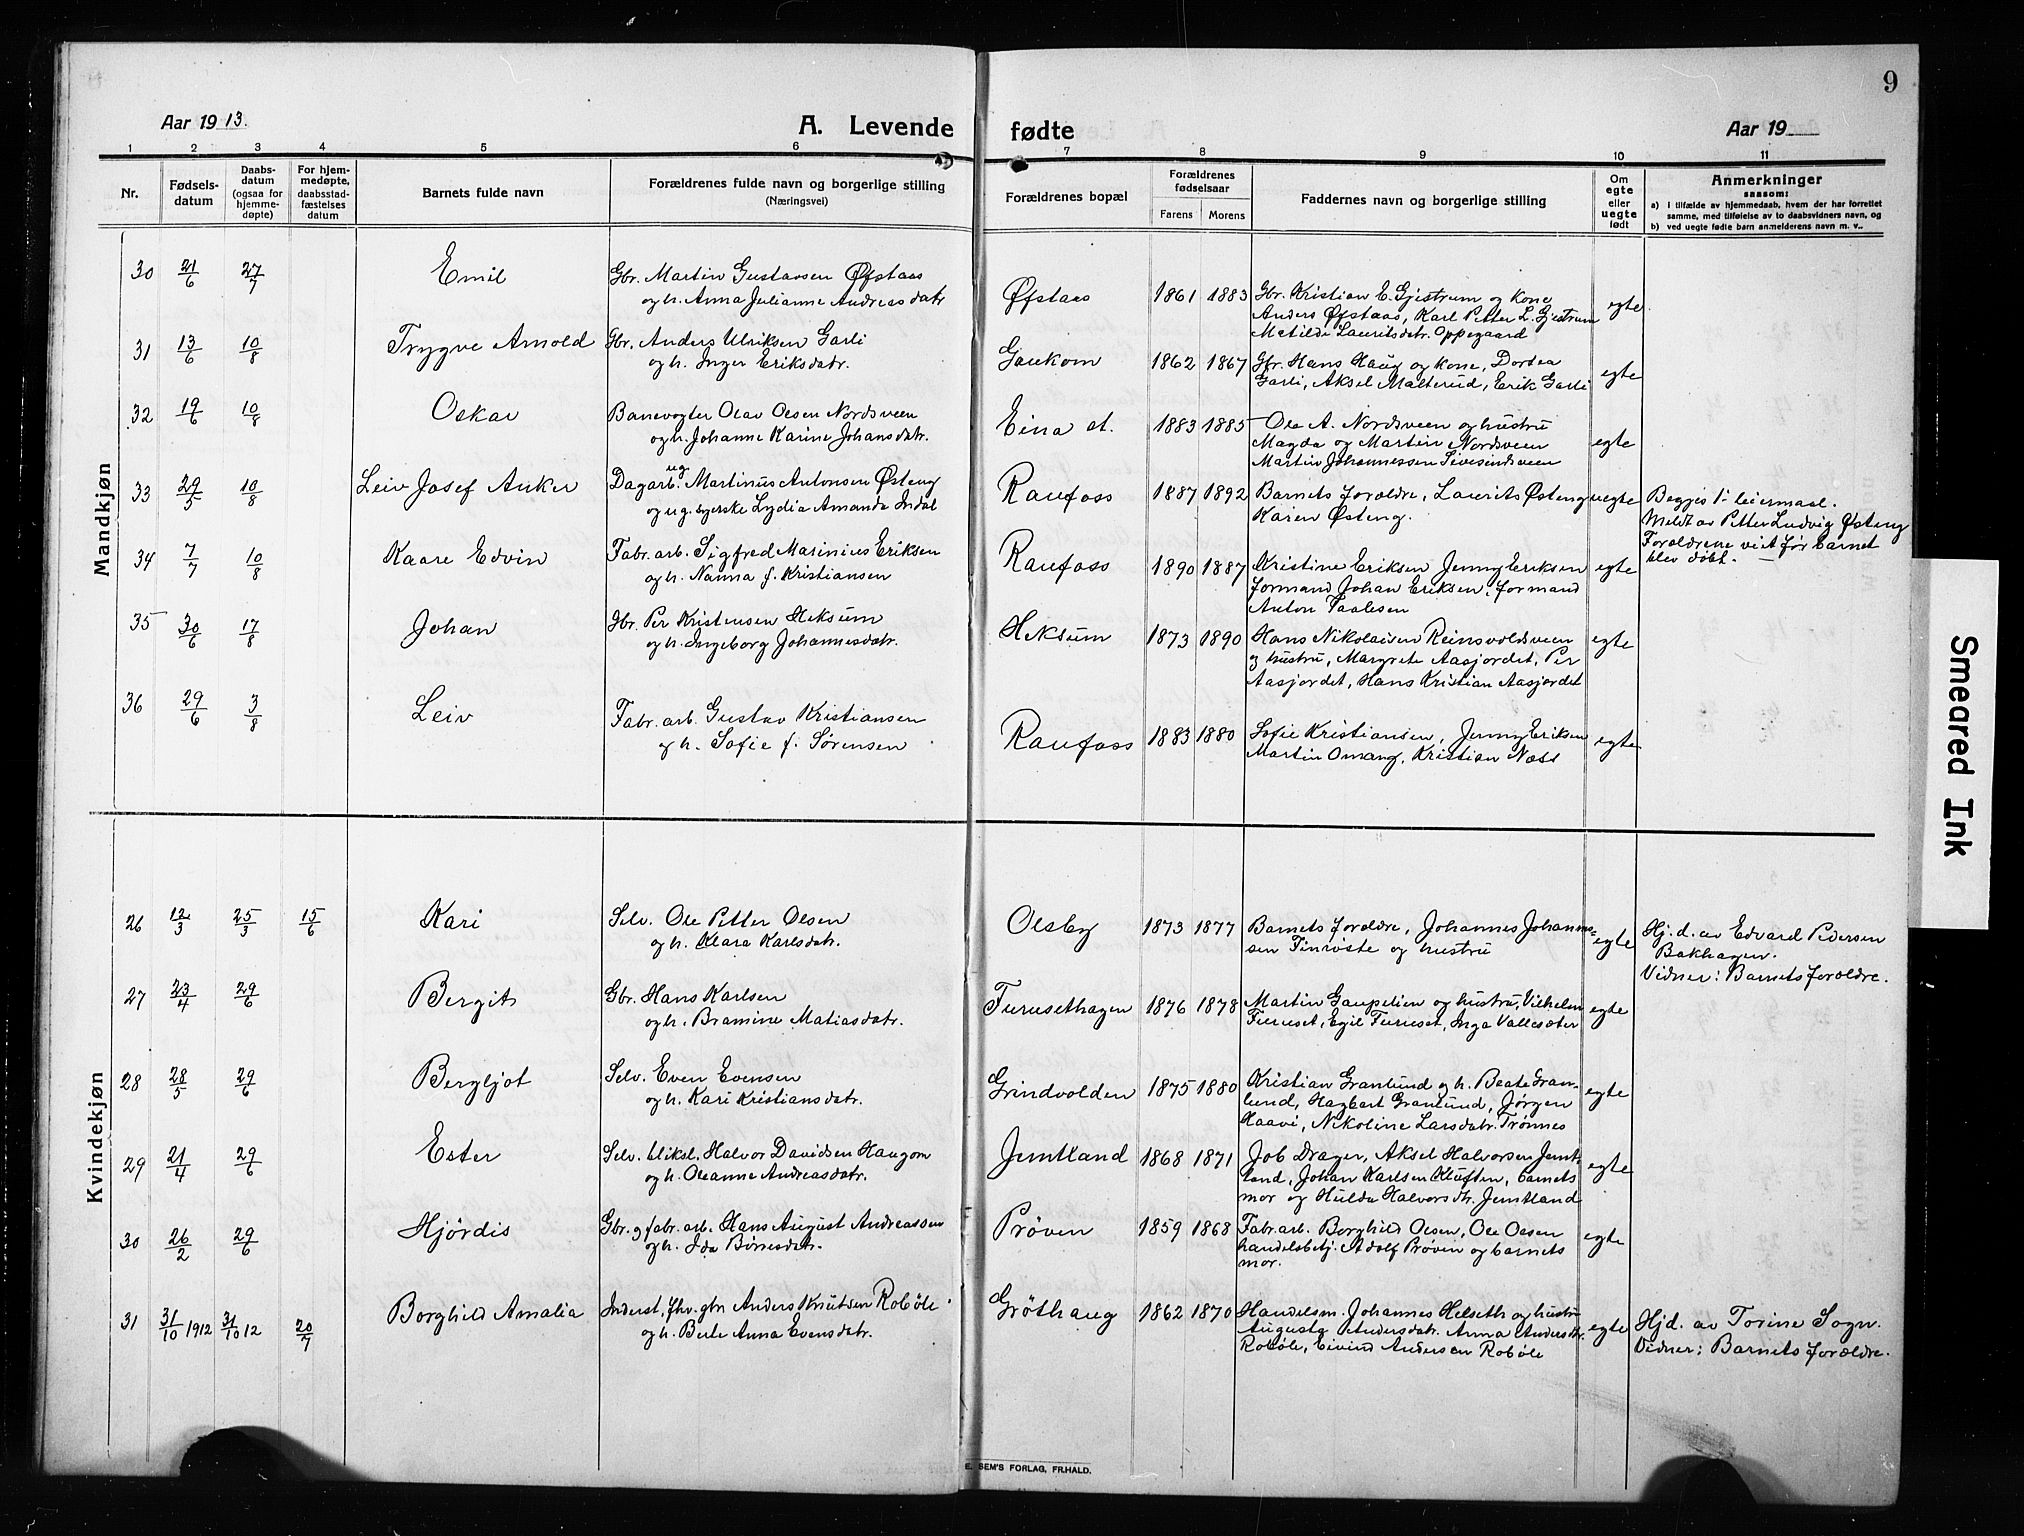 9
Aar 1913.
A. Levende fødte
Aar 19
1 2 3 4 5 6 7 8 9 10 11
Nr.
Fødsels-
datum
Daabs-
datum
(ogsaa for
hjemme-
døpte)
For hjem-
medøpte,
daabsstad-
fæstelses
datum
Barnets fulde navn
Forældrenes fulde navn og borgerlige stilling
(Næringsvei)
Forældrenes bopæl
Forældrenes
fødselsaar
Farens Morens
Faddernes navn og borgerlige stilling
Om
egte
eller
uegte
født
Anmerkninger
saasom:
a) i tilfælde av hjemmedaab, hvem der har forrettet
samme, med tilføielse av to daabsvidners navn, og
b) ved uegte fødte barn anmelderens navn m. v..
Mandkjøn
30 21/6 27/7 Emil
Gbr. Martin Gustavsen Øfstaas
og h. Anna Julianne Andreasdatr
Øfstaas 1861 1883
Gbr. Kristian E. Gjestrum og kone
Anders Øfstaas, Karl Petter L. Gjestrum
Matilde Lauritsdatr. Oppegaard
egte
31 13/6 10/8 Trygve Arnold
Gbr. Anders Ulriksen Garli
og h. Inger Eriksdatr.
Gaukom 1862 1867
Gbr. Hans Haug og kone, Dortea
Garli, Aksel Malterud, Erik Garli
egte
32 19/6 10/8 Oskar
Banevogter Olav Olsen Nordsveen
og h. Johanne Karine Johansdatr.
Eina st. 1883 1885
Ole A. Nordsveen og hustru
Magda og Martin Nordsveen
Martin Johannessen Sivesindsveen
egte
33 29/5 10/8 Leiv Josef Anker
Dagarb. ug. Martinus Antonsen Østeng
og ug. syerske Lydia Amanda Indal
Raufoss 1887 1892
Barnets forældre, Laurits Østeng
Karen Østeng.
uegte
Begges 1ste leiermaal.
Meldt av Petter Ludvig Østeng
Forældrene viet før barnet
blev døbt.
34 7/7 10/8 Kaare Edvin
Fabr. arb. Sigfred Marinius Eriksen
og h. Nanna f. Kristiansen
Raufoss 1890 1887
Kristine Eriksen Jenny Eriksen
formand Johan Eriksen, formand
Anton Paulsen
egte
35 30/6 17/8 Johan
Gbr. Per Kristensen Heksum
og h. Ingeborg Johannesdatr.
Heksum 1873 1890
Hans Nikolaisen Reinsvoldsveen
og hustru, Margrete Aasjordet, Per
Aasjordet, Hans Kristian Aasjordet
egte
36 29/6 3/8 Leiv
Fabr. arb. Gustav Kristiansen
og h. Sofie f. Sørensen
Raufoss 1883 1880
Sofie Kristiansen, Jenny Eriksen
Martin Omang, Kristian Næss
egte
Kvindekjøn
26 12/3 25/3 15/6 Kari
Selv. Ole Petter Olsen
og h. Klara Karlsdatr.
Olsby 1873 1877
Barnets forældre, Johannes Johannes-
sen Finrøste og hustru
egte
Hj. d. av Edvard Pedersen
Bakhagen.
Vidner: Barnets forældre.
27 23/4 29/6 Bergit
Gbr. Hans Karlsen
og h. Bramine Matiasdatr.
Furusethagen 1876 1878
Martin Gaupelien og hustru, Vilhelm
Furuset, Egil Furuset, Inga Vallesæter
egte
28 28/5 29/6 Bergljot
Selv. Even Evensen
og h. Kari Kristiansdatr.
Grindvolden 1875 1880
Kristian Granlund og h. Beate Gran-
lund, Hagbart Granlund, Jørgen
Haavi, Nikoline Larsdatr. Trønnes
egte
29 21/4 29/6 Ester
Selv. bliksl. Halvor Davidsen Haugom
og h. Oleanne Andreasdatr.
Jemtland 1868 1871
Job Drager, Aksel Halvorsen Jemt-
land, Johan Karlsen Kluften, barnets
mor og Hulda Halvorsdtr. Jemtland
egte
30 26/2 29/6 Hjørdis
Gbr. og fabr. arb. Hans August Andreassen
og h. Ida Børresdatr.
Prøven 1859 1868
Fabr. arb. Borghild Olsen, Ole Olsen
handelsbetj. Adolf Prøven og barnets
mor.
egte
31 31/10 1912 31/10 12 20/7 Borghild Amalia
Inderst, fhv. gbr. Anders Knutsen Robøle
og h. Berte Anna Evensdatr.
Grøthaug 1862 1870
Handelsm. Johannes Helseth og hustru
Augusta Andersdatr. Anna Andersdtr.
Robøle, Eivind Andersen Robøle
egte
Hjd. av Torine Sogn.
Vidner: Barnets forældre.
E. SEM'S FORLAG, FR.HALD.
Smeared Ink